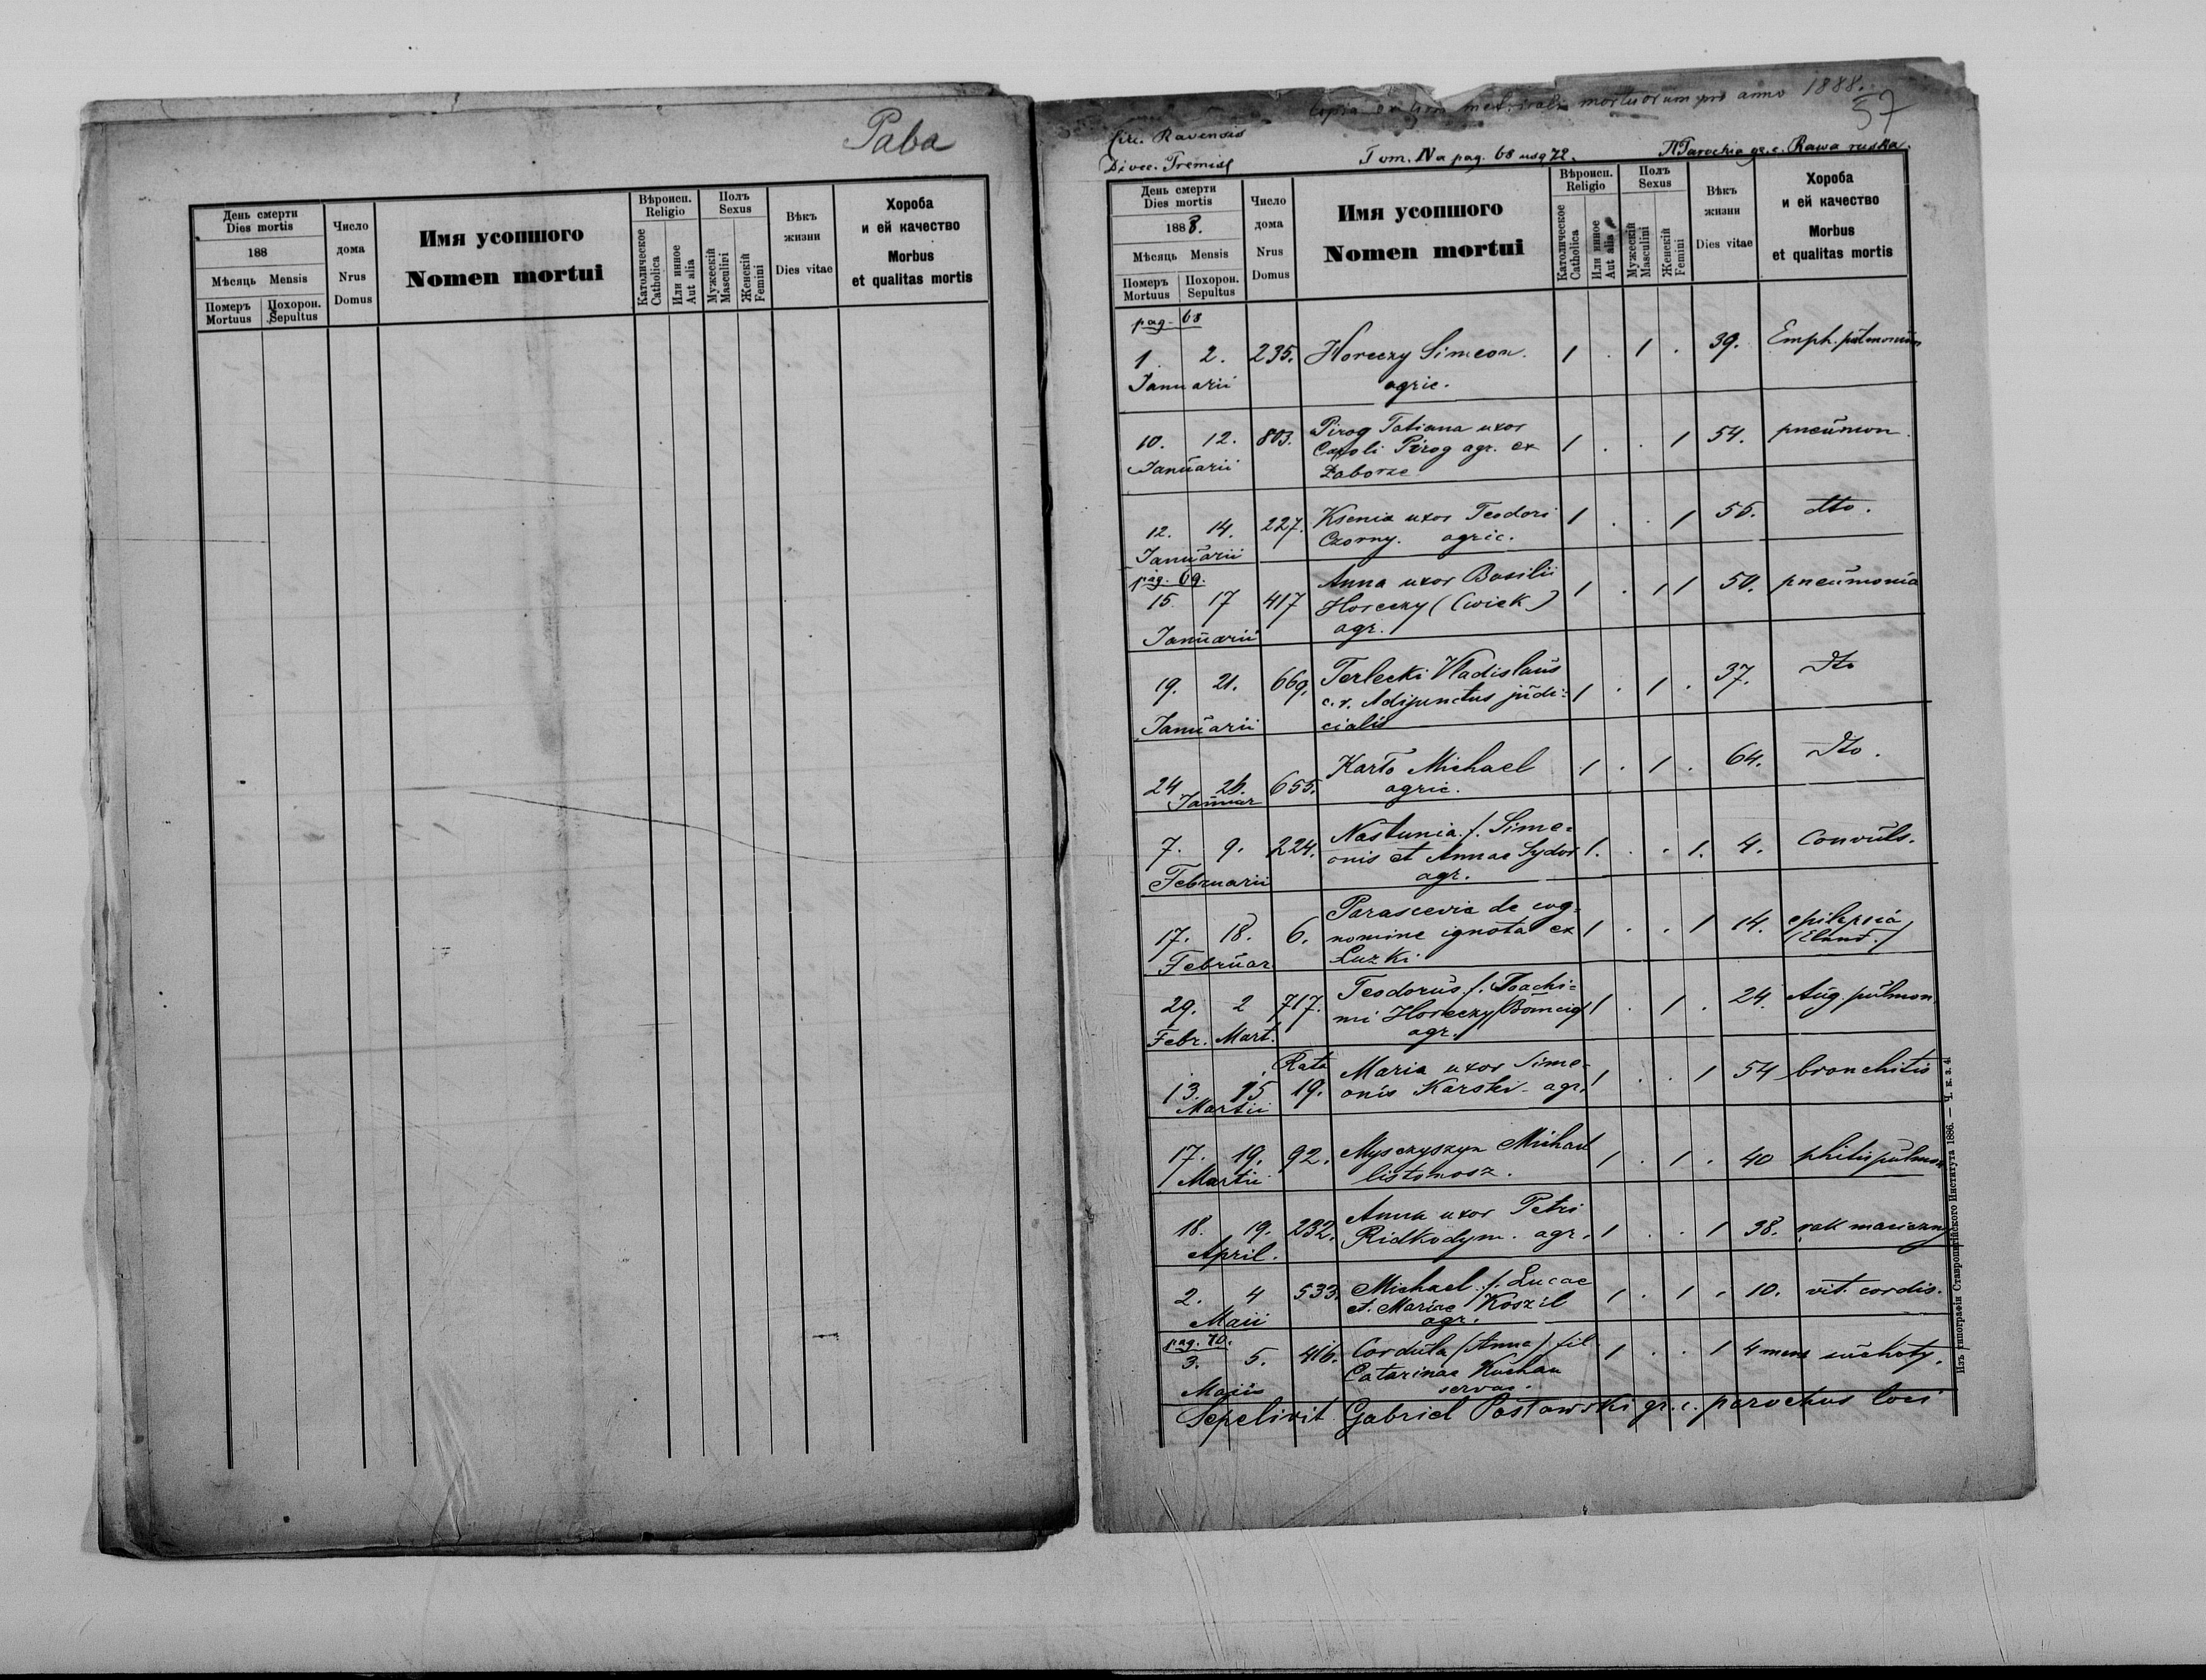 Рава
День смерти
Dies mortis
188
Мѣсяць Mensis
Померъ
Mortuus
Похорон.
Sepultus
Число
дома
Nrus
Domus
Имя усопшого
Nomen mortui
Вѣроисп.
Religio
Католическое
Catholica
Или инное
Aut alia
Полъ
Sexus
Мужескій
Masculini
Женскій
Femini
Вѣкъ
жизни
Dies vitae
Хороба
и ей качество
Morbus
et qualitas mortis
Copia ex libro metricali mortuorum pro anno 1888.
57
Circ. Ravensis
Dioec. Premisl
Tom. IV a pag. 68 usq 72.
Parochia gr. c. Rawa ruska.
День смерти
Dies mortis
1888.
Мѣсяць Mensis
Померъ
Mortuus
Похорон.
Sepultus
Число
дома
Nrus
Domus
Имя усопшого
Nomen mortui
Вѣроисп.
Religio
Католическое
Catholica
Или инное
Aut alia
Полъ
Sexus
Мужескій
Masculini
Женскій
Femini
Вѣкъ
жизни
Dies vitae
Хороба
и ей качество
Morbus
et qualitas mortis
pag. 68
1. 2. 235. Horeczy Simeon. 1 . 1 . 39. Emph. pulmonum
Januarii agric.
10. 12. 803. Pirog Tatiana uxor 1 . . 1 54. pneumon.
Caroli Pirog agr. ex
Januarii Zaborze
12. 14. 227. Ksenia uxor Teodori 1 . . 1 55. dto.
Czorny. agric.
Januarii
pag. 69.
15. 17 417 Anna uxor Basilii 1 . 1 1 50. pneumonia
Horeczy (Cwiek)
Januarii agr.
19. 21. 669. Terlecki Vladislaus 1 . 1 . 37. dto
c. r. Adjunctus judi=
Januarii cialis
24 26. 655. Karto Michael 1 . 1 . 64. dto.
Januar agric.
7. 9. 224. Nastunia f. Sime= 1. . . 1. 4. Convuls.
onis et Annae Sydor
Februarii agr.
17. 18. 6. Parascevia de cog= 1 . . 1 14. epilepsia
nomine ignota ex
Februar Luzki
29. 2 717. Teodorus f. Joachi= 1 . 1 . 24. Aug. pulmon.
mi Horeczy
Febr. Mart. agr.
Rata
13. 15 19. Maria uxor Sime= 1 . . 1 54 bronchitis
onis Karski agr.
Martii
17. 19. 92. Mysczyszyn Michael 1 . 1 . 40 phitis pulmon
Martii listonosz.
18. 19. 232. Anna uxor Petri 1 . . 1 38. rak maciczny
Ridkodym. agr.
April.
2. 4 533. Michael f. Lucae 1 . 1 . 10. vit. cordis.
et Mariae Koszil
Maii agr.
pag. 70.
3. 5. 416. Corduta (Anna) fil 1 . . 1 4 mens suchoty.
Catarinae Kuchan
Maiis servae.
Sepelivit Gabriel Postawski gr. c. parochus loci
Изъ типографіи Ставропигійского Института 1886. — Ч. к. з. 4